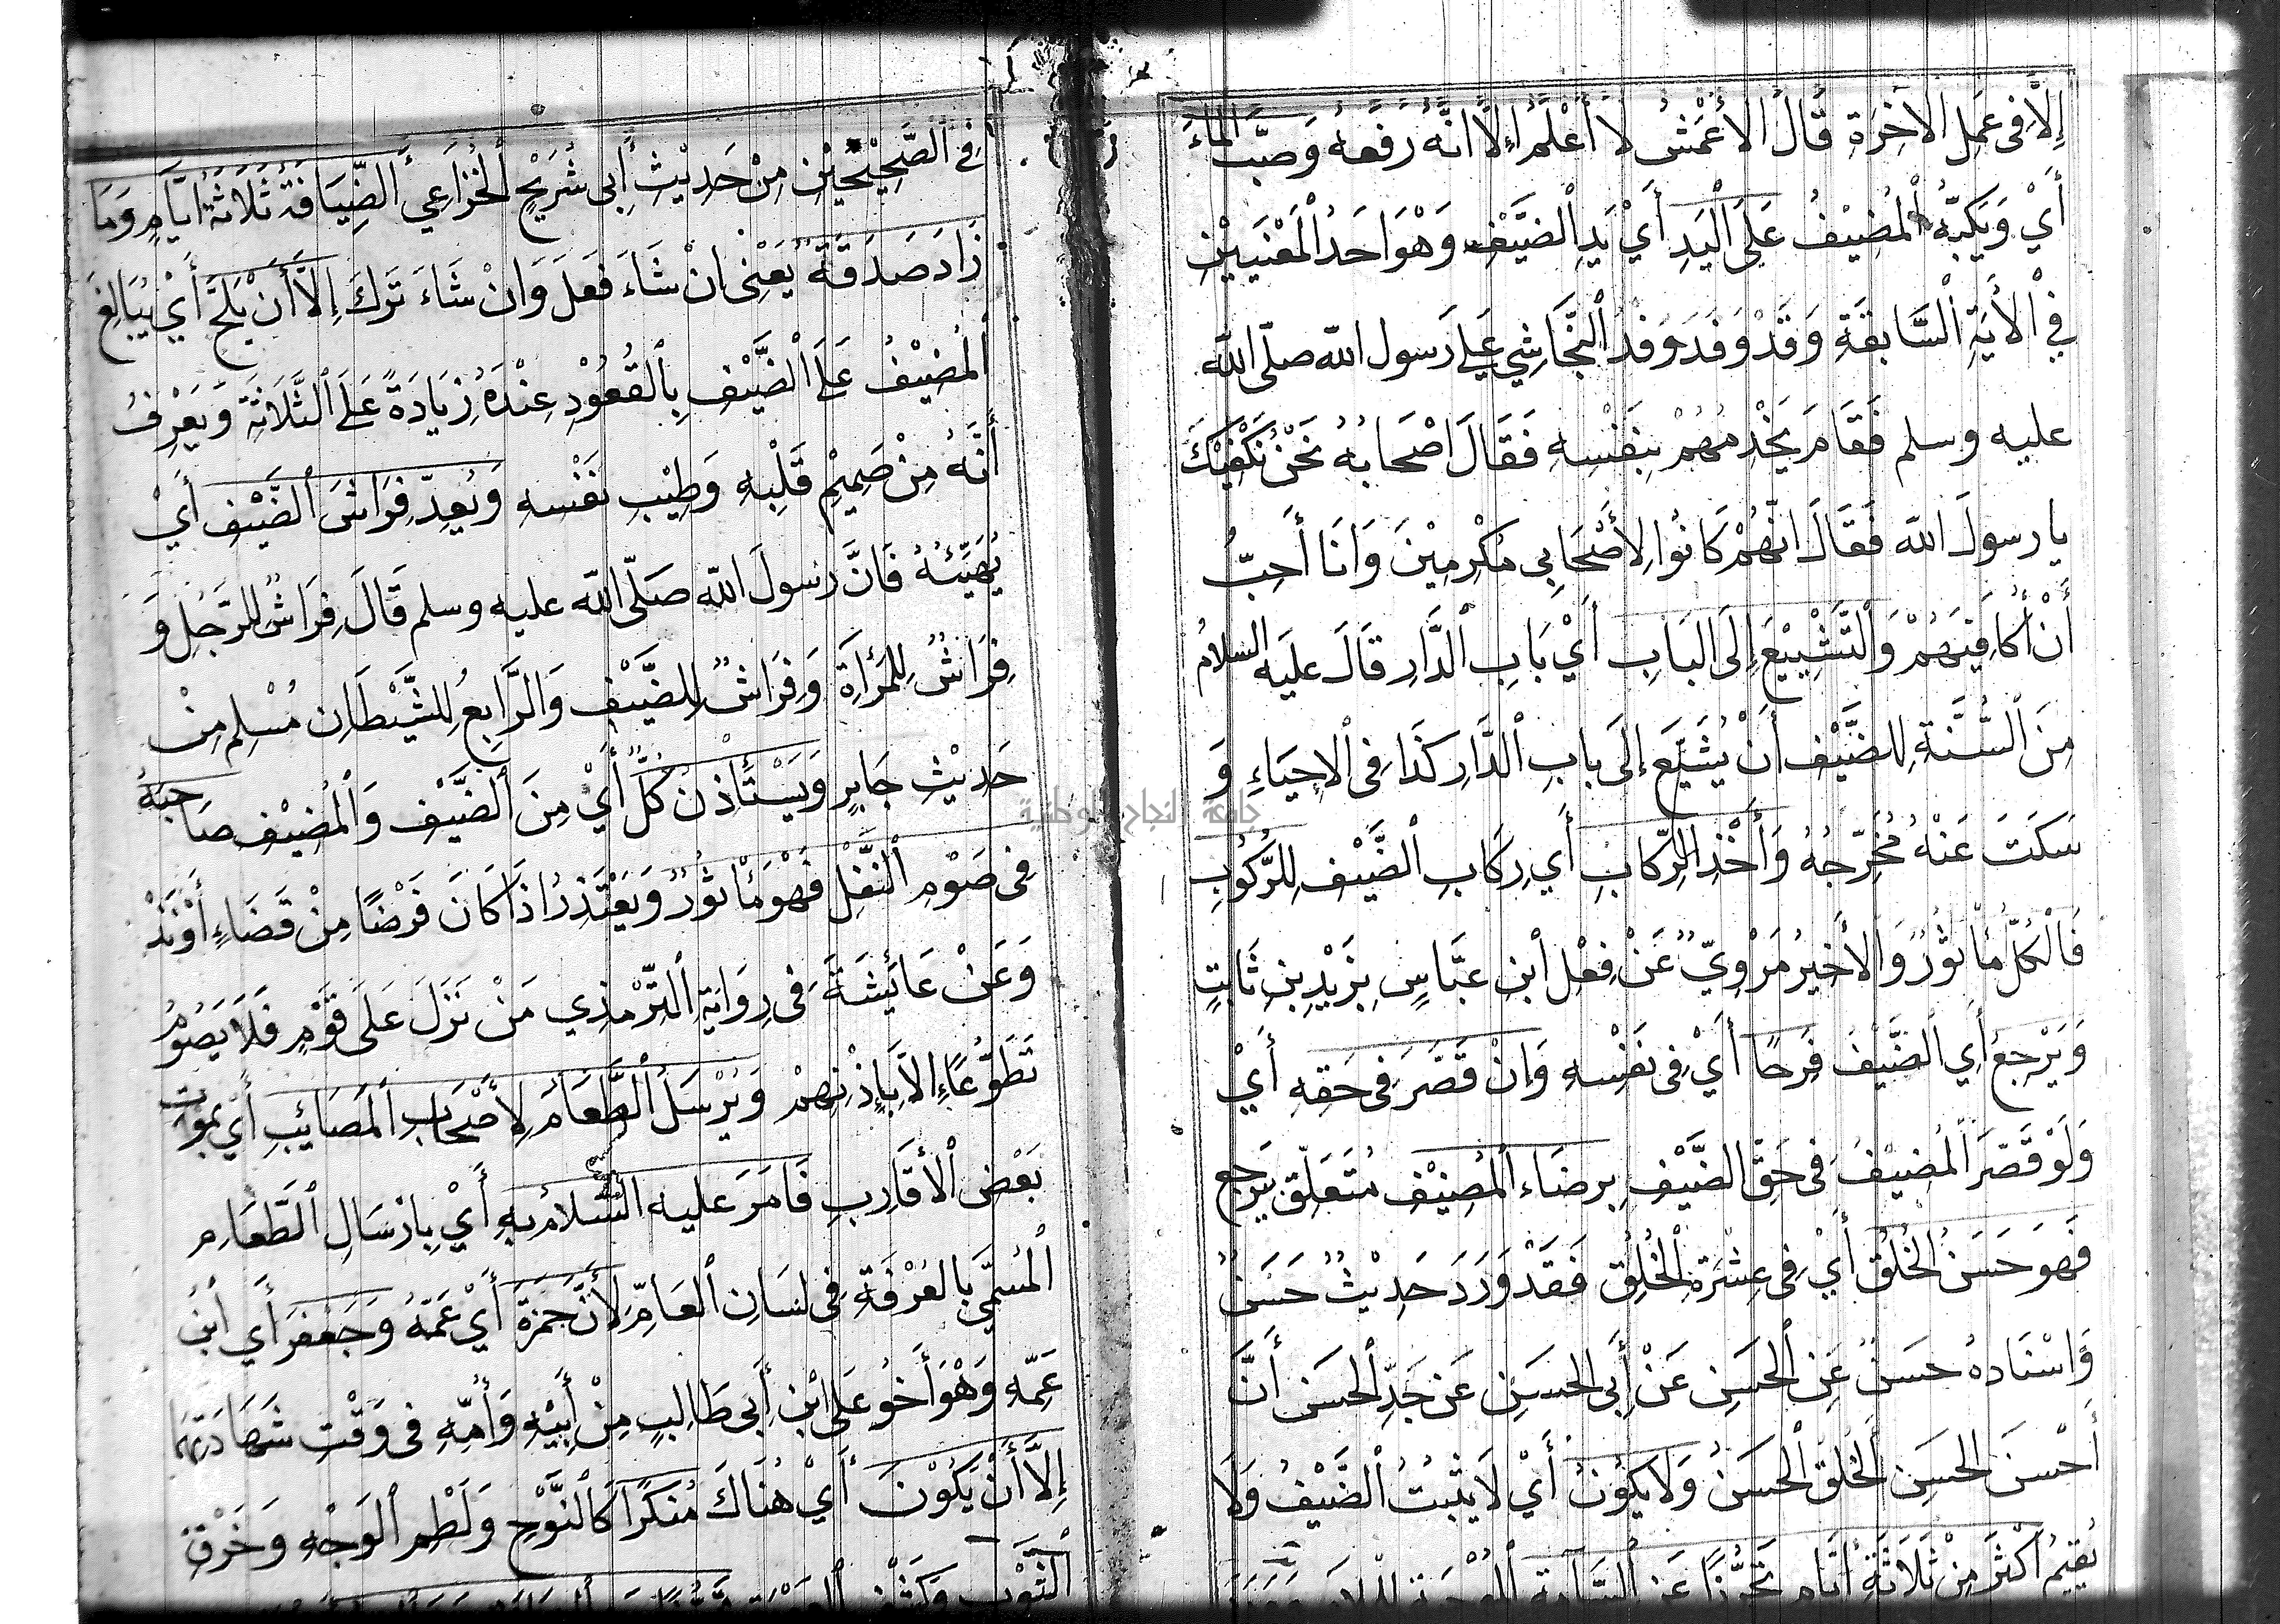 إِلَّا فِى عَمَلِ الاخِرَةِ قَالَ الأَعْمَشُ لَا أَعْلَمُ إِلَّا انَّهُ رَفَعَهُ وَصَبُّ الماءِ
أَيْ وَيَكُبُّهُ الْمُضِيْفُ عَلَى الْيَدِ أَيْ يَدِ الضَّيْفِ وَهْوَ احَدُ الْمَعْنَيَيْنِ
فِي الْأَيَةِ السَّابِقَةِ وَقَدْ وَفَدَ وَفْدُ النَّجَاشِي عَلَى رَسول الله صلّى الله
عليه وسلم فَقَامَ يَخْدِمُهُمْ بِنَفْسِهِ فَقَالَ اصْحَابُهُ نَحْنُ نَكْفِيْكَ
يا رسولَ الله فَقَالَ انَّهُمْ كَانُوا لِأَصْحَابِى مُكْرِمِيْنَ وَانَا أُحِبُّ
أَنْ أُكَافِيَهُمْ وَالتَّشْيِيْعَ إِلَى البَابِ أَيْ بَابِ الدَّارِ قَالَ عليَه السلامُ
مِنَ السُّنَّةِ لِلضَّيْفِ انْ يُشَيَّعَ إلَى بابِ الدَّارِ كَذَا فِى الْإحيَاءِ وَ
سَكَتَ عَنْهُ مُخَرِّجُهُ وَأَخْذِ الرِّكَابِ أَي رِكَابِ الضَّيْفِ لِلرُّكُوْبِ
فَالْكُلُّ مَأْثُوْرٌ وَالأَخِيرُ مَرْوِيٌّ عَنْ فِعْلِ ابْنِ عبَّاسٍ بِزَيْدِ بْنِ ثَابتٍ
وَيَرْجِعُ أَيِ الضَّيْفُ فَرِحًا أَيْ فِى نَفْسِهِ وَإنْ قَصَّرَ فِى حَقِهِ أَيْ
وَلَوْ قَصَّرَ الْمُضِيْفُ فِى حَقِّ الضَّيْفِ بِرِضَاءِ الْمُضِيْفِ مُتَعَلِّقٌ بِيَرجِع
فَهوَ حَسَنُ الخُلُقِ أَيْ فِى عِشْرَةِ الْخُلُقِ فَقَدْ وَرَدَ حَدِيْثٌ حَسَنٌ
وَاسْنَادهُ حسَنٌ عَنِ الحَسَنِ عَنْ أَبِى الحسَيْنِ عَن جَدِّ الحَسَنِ أَنَّ
أَحْسَنَ الحَسَنِ الخُلُقُ الْحَسَنُ وَلَا يَكُوْنُ أَيْ لَا يَثْبُتُ الضَّيْفُ وَلَا
يُقِيْمُ اكْثَرَ مِنْ ثَلَاثَةِ أَيَّامٍ تَحَرُّزًا عَنِ
فِي الصَّحِيْحَيْنِ مِنْ حَدِيْثِ أَبِى شُرَيْحٍ الْخُزَاعِي الضِّيَافَةُ ثَلَاثَةُ ايَّامٍ وَمَا
زَادَ صَدَقَةٌ يَعْنِى انْ شَاءَ فَعَلَ وَانْ شَاءَ تَرَكَ إِلَّا أَنْ يُلِحَّ أَيْ يُبَالِغَ
الْمُضِيْفُ عَلَى الضَّيْفِ بِالْقُعُوْدِ عِنْدَهُ زِيَادَةً عَلَى الثَّلَاثَةِ وَيَعْرِفُ
أَنَّهُ مِنْ صَمِيْمِ قَلْبِهِ وَطِيْبِ نَفْسِهِ وَيُعِدّ فِرَاشَ الضَّيْفِ أَيْ
يُهَيِّئُهُ فَانَّ رَسولَ الله صَلّى الله عليه وسلم قَالَ فِرَاشٌ لِلرَّجُلِ وَ
فِرَاشٌ لِلمَرْأَةِ وَفِرَاشٌ لِلضَّيْفِ وَالرَّابِعُ لِلشَّيْطَانِ مُسْلِم مِنْ
حَدِيْثِ جَابِرٍ وَيَسْتَأْذِنُ كُلٌّ أَيْ مِنَ الضَّيْفِ وَالْمُضِيْفِ صَاحِبَهُ
فِى صَوْمِ النَّفْلِ فَهْوَ مَأْثُوْرٌ وَيَعْتَذِرُ اذَا كَانَ فَرْضًا مِنْ قَضَاءٍ أَوْ نَذْ
وَعَنْ عَائِشَةَ فِى رِوَايَةِ التِّرْمذِي مَنْ نَزَلَ عَلَى قَوْمٍ فَلَا يَصُوْمُ
تَطَوُّعًا إِلَّا بِإِذْنِهِمْ وَيُرْسَلُ الطَّعَامُ لِأَصْحَابِ الْمَصَائِبِ أَي بِمَوْت
بَعْضِ الْأَقَارِبِ فَامَرَ عليه السَّلَامُ بِهِ أَيْ بِارْسَالِ الطَّعَامِ
الْمُسَمَّى بِالعُرْفَةِ فِى لِسَانِ الْعَامِّ لِأَنَّ حَمْزَةَ أَيْ عَمَّهُ وَجَعْفَرَ أَي ابْنُ
عَمِّهِ وَهْوَ أَخُو عَلى ابْنِ أَبِى طَالِبٍ مِنْ أَبِيْهِ وَأُمِّهِ فِى وَقْتِ شَهَادَتِهِمَا
إِلَّا أَنْ يَكُوْنَ أَيْ هُنَاكَ مُنكَرًا كَالنَّوْحِ وَلَطْمِ الْوَجْهِ وَخَرْقِ
الثَّوْبِ وَكَشْفِ
جامعة النجاح الوطنية